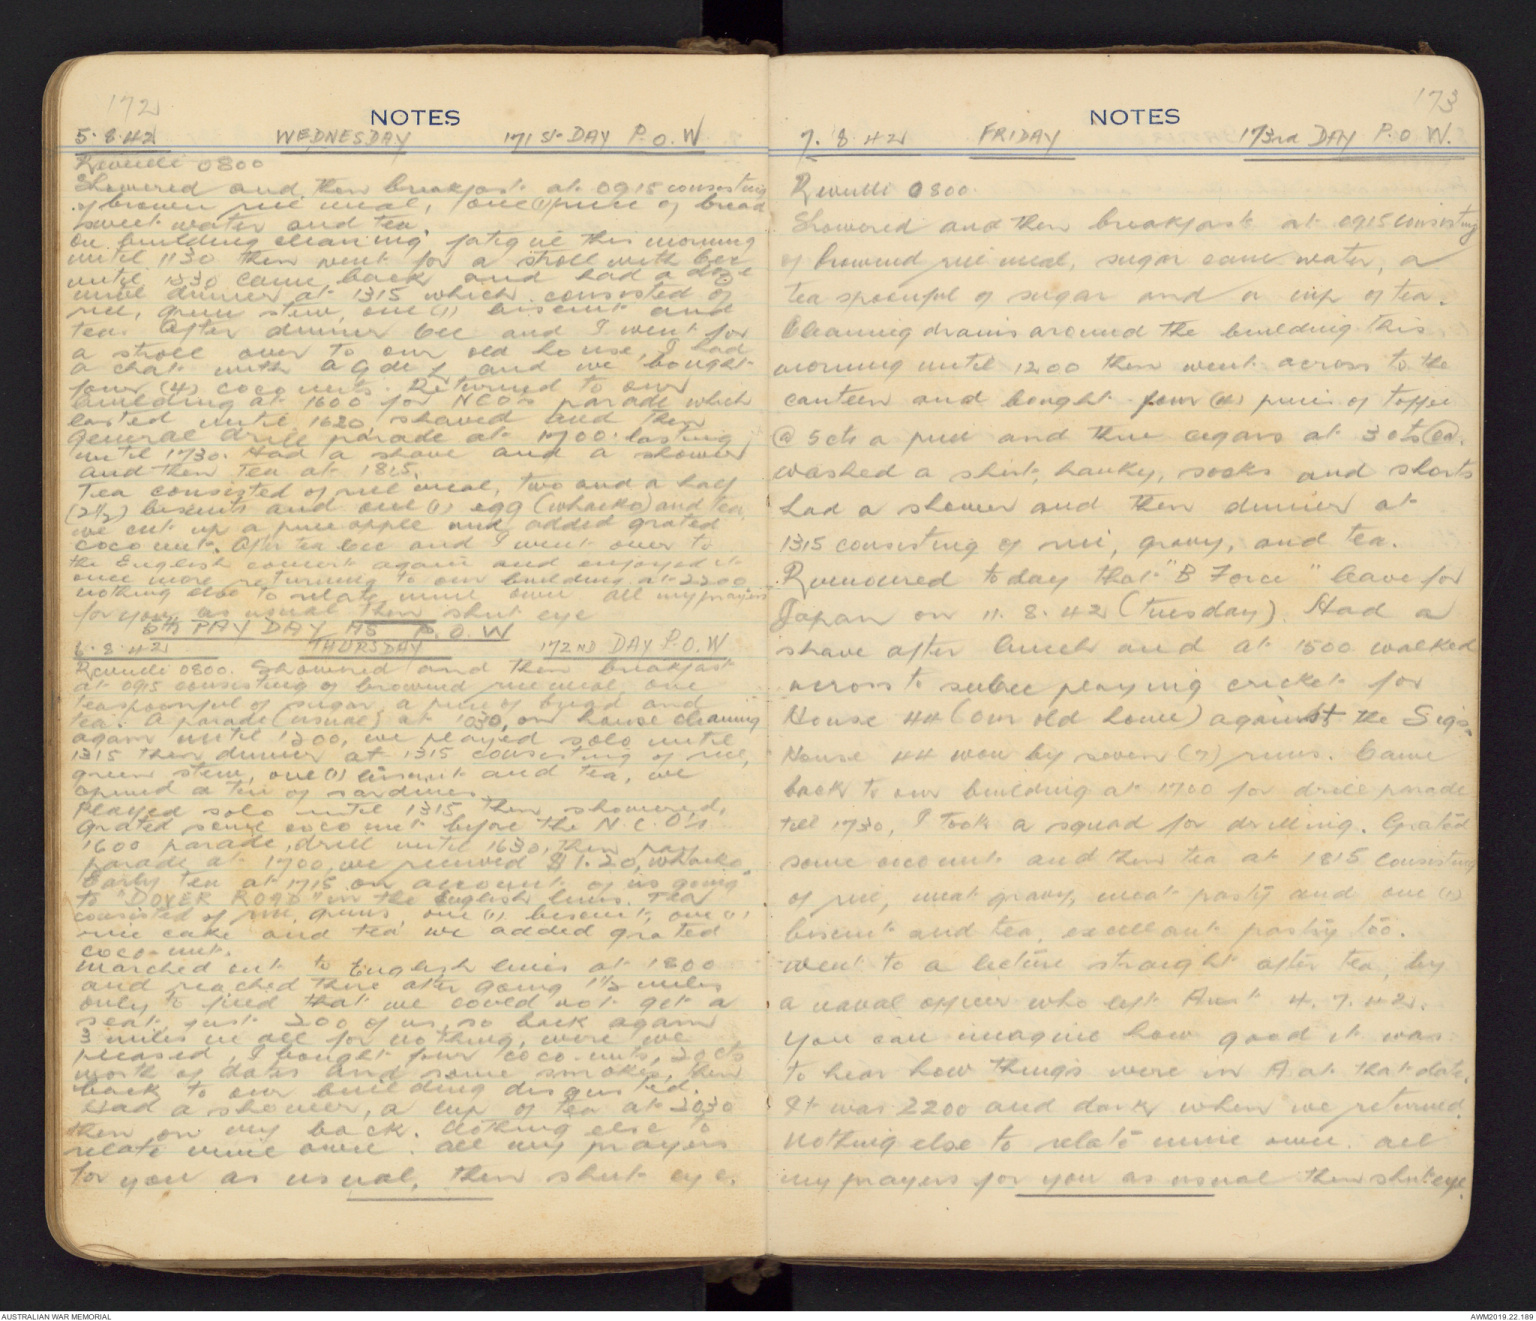 172
NOTES
5.8.42 WEDNESDAY 171st DAY P.O.W
Reveille 0800
Showered and then breakfast at 0915 consisting
of brown rice meal, one (1) piece of bread
sweet water and tea.
On building cleaning fatigue this morning
until 1130 then went for a stroll with bee
until 1230 came back and had a doze
until dinner at 1315 which consisted of
rice, green stew, one (1) biscuit and
tea. After dinner bee and I went for
a stroll over to our old house, I had
a chat with and we bought
four (4) coconuts. Returned to our
building at 1600 for NCO's parade which
lasted until 1620, shaved and then
general drill parade at 1700 lasting
until 1730. Had a shave and a shower
and then tea at 1815.
Tea consisted of rice meal, two and a half
(2½) biscuits and one (1) egg (whacko) and tea,
we cut up a pineapple and added grated
coconut. After tea bee and I went over to
the English concert again and enjoyed it
once more returning to our building at 2200
nothing else to relate mine own all my prayers
for you as usual then shut eye
6th PAY DAY AS P.O.W
6.8.42 THURSDAY 172ND DAY P.O.W
Reveille 0800. Showered and then breakfast
at 0915 consisting of browned rice meal, one
teaspoonful of sugar, a piece of bread and
tea. A parade (usual) at 1030, on house cleaning
again until 1200, we played solo until
1315 then dinner at 1315 consisting of rice,
green stew, one (1) biscuit and tea, we
opened a tin of sardines.
Played solo until 1315 then showered,
grated some coconut before the N.C.O's
1600 parade, drill until 1630, then pay
parade at 1700, we received $1.20, whacko.
Early tea at 1715 on account of us going
to "DOVER ROAD" in the English lines. Tea
consisted of rice, greens, one (1) biscuit, one (1)
rice cake and tea we added grated
coco-nut.
Marched out to English lines at 1800
and reached there after going 1½ miles
only to find that we could not get a
seat, just 200 of us, so back again
3 miles in all for nothing, were we
pleased, I bought four coco-nuts, 20cts
worth of dates and some smokes, then
back to our building disgusted.
Had a shower, a cup of tea at 2030
then on my back. Nothing else to
relate mine own. All my prayers
for you as usual, then shut eye.
173
NOTES
7.8.42 FRIDAY 173rd DAY P.O.W.
Reveille 0800.
Showered and then breakfast at 0915 consisting
of browned rice meal, sugar cane water, a
tea spoonful of sugar and a cup of tea.
Cleaning drains around the building this
morning until 1200 then went across to the
canteen and bought four (4) pieces of toffee
@ 5cts a piece and three cegars at 3cts ea.
washed a shirt, hanky, socks and shorts
had a shower and then dinner at
1315 consisting of rice, gravy, and tea.
Rumoured today that "B Force" leave for
Japan on 11.8.42 (Tuesday). Had a
shave after lunch and at 1500 walked
across to see bee playing cricket for
House 44 (our old home) against the Sigs.
House 44 won by seven (7) runs. Came
back to our building at 1700 for drill parade
till 1730, I took a squad for drilling. Grated
some coconut and then tea at 1815 consisting
of rice, meat gravy, meat pasty and one (1)
biscuit and tea, excellant pasty too.
Went to a lecture straight after tea, by
a naval officer who left Aust 4.7.42.
You can imagine how good it was
to hear how things were in A. at that date.
It was 2200 and dark when we returned.
Nothing else to relate mine own. all
my prayers for you as usual then shut eye.
AUSTRALIAN WAR MEMORIAL
AWM2019.22.189